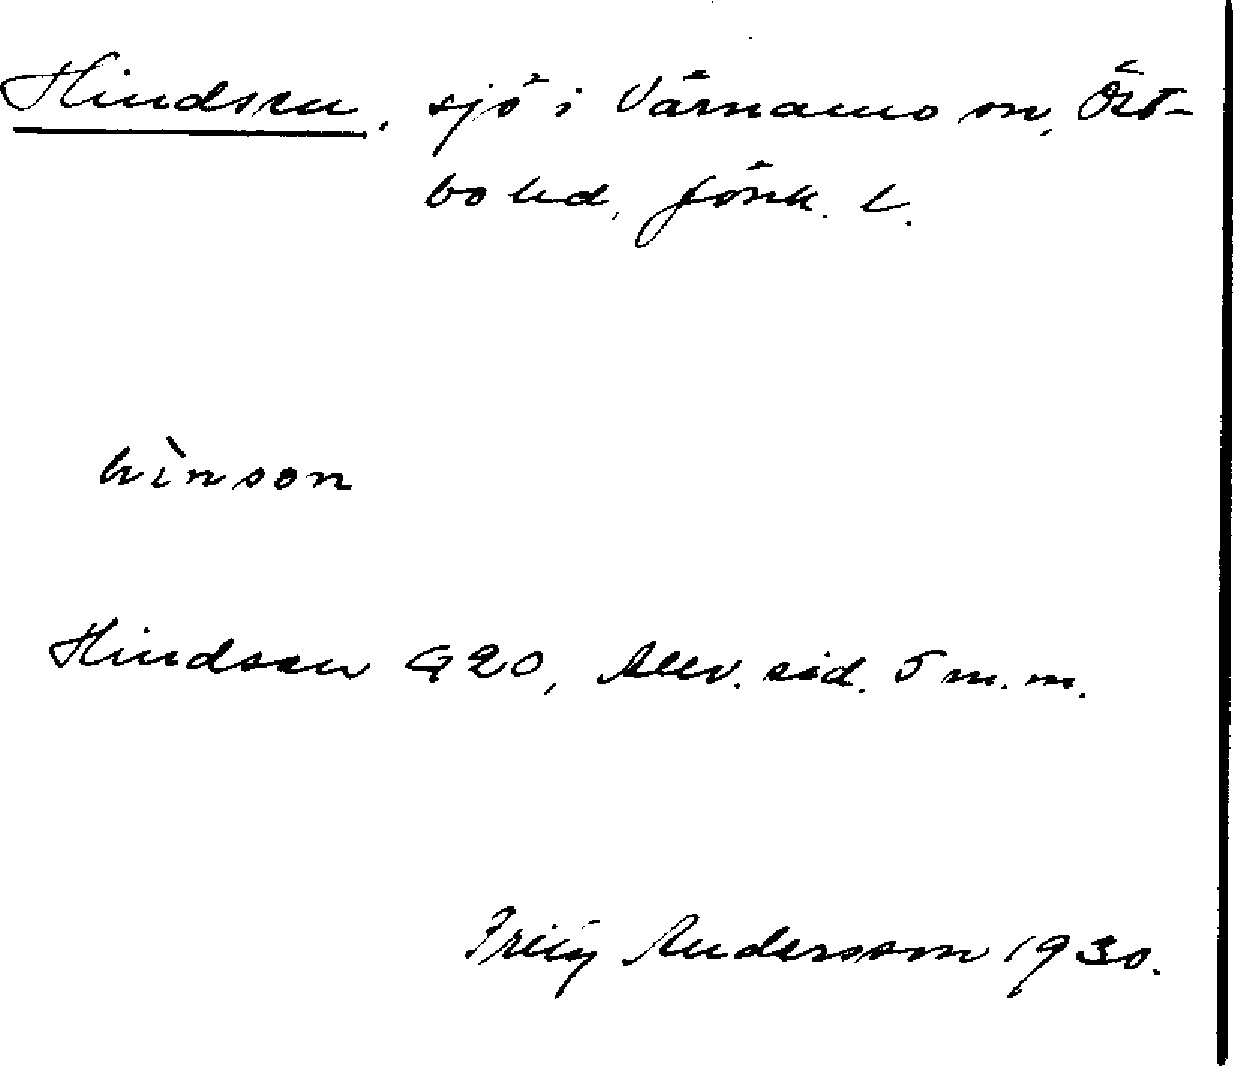 Hindsen, sjö i Värnamo sn, Öst-
bo hd, Jönk. l.
hìnson
Hindsen G20, Allv. sid. 5 m.m.
Andersson 1930.